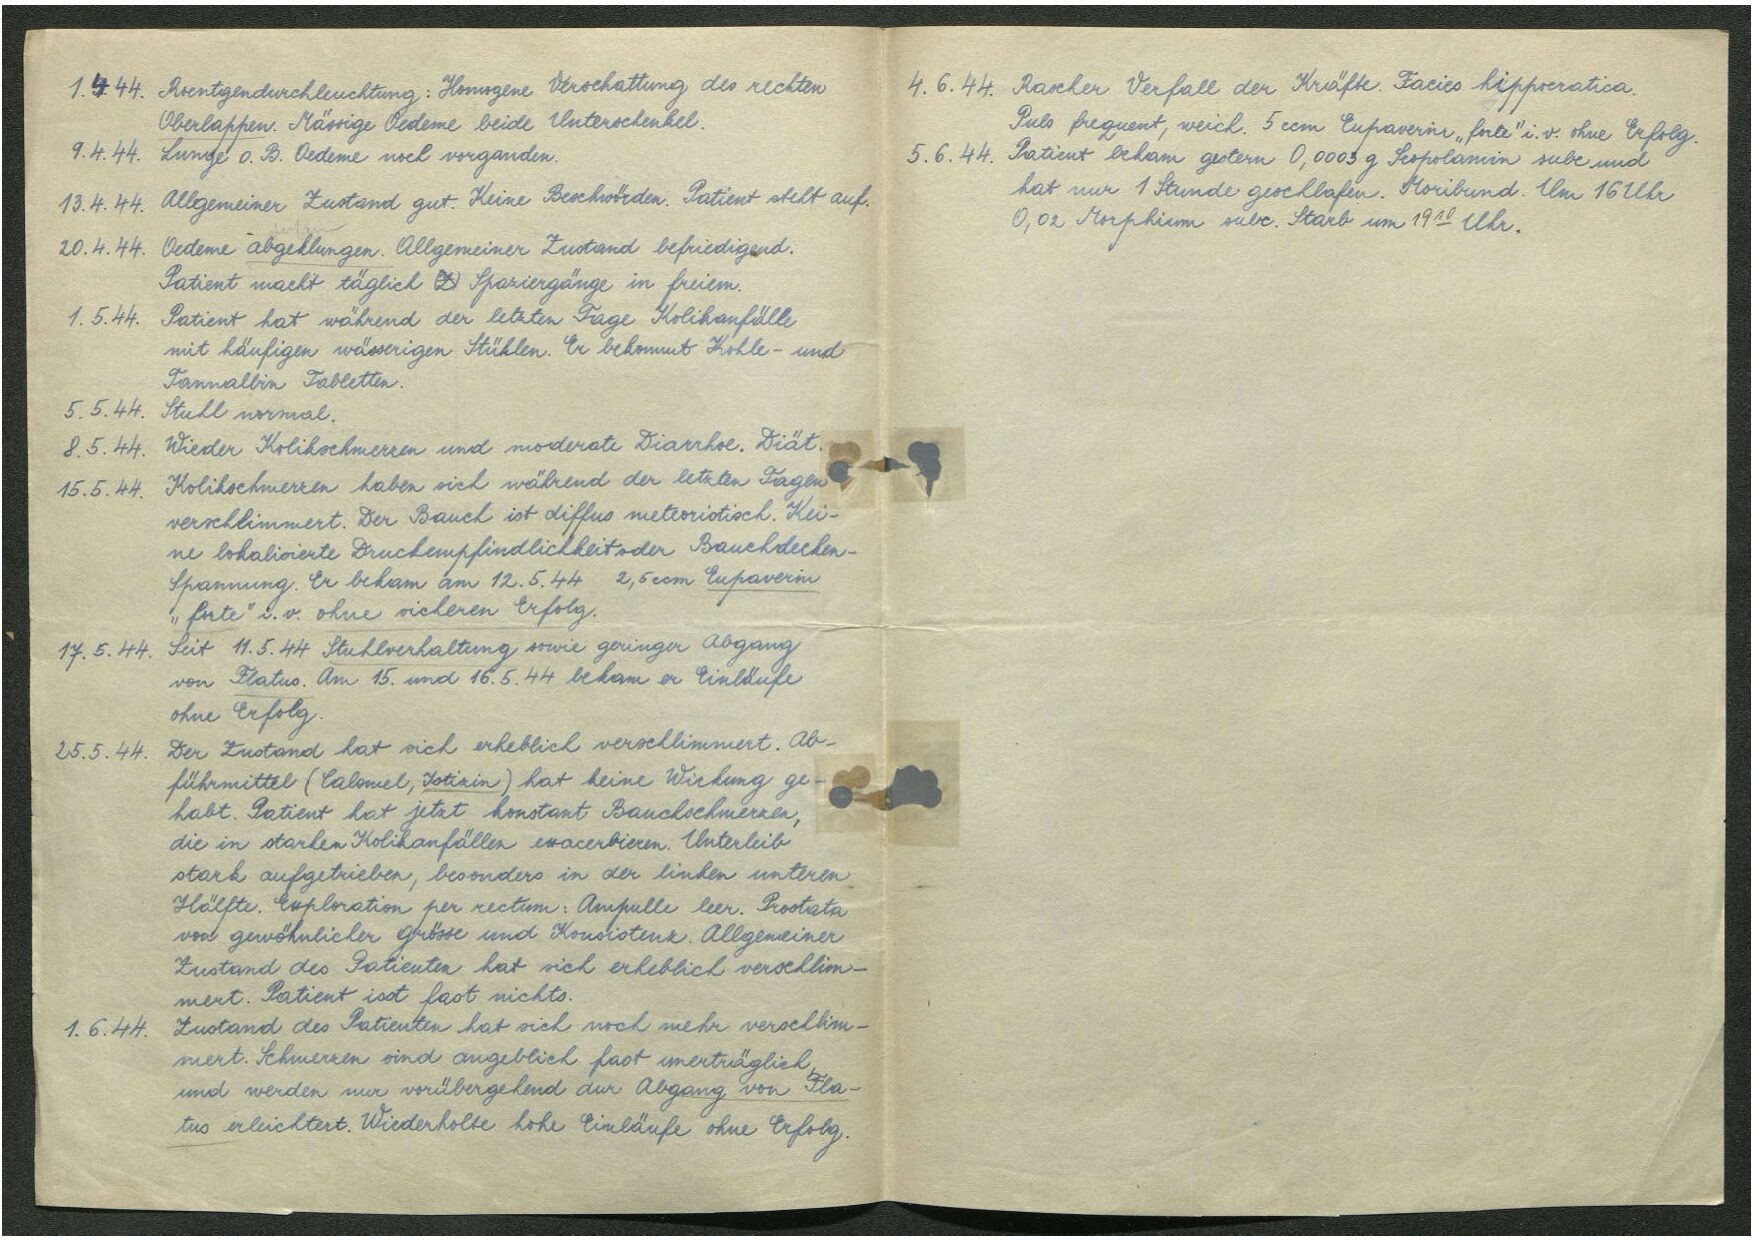 1.4.44. Roentgendurchleuchtung: Homogene Verschattung des rechten
Oberlappen. Mässige Oedeme beide Unterschenkel.
9.4.44. Lunge o. B. Oedeme noch vorganden.
13.4.44. Allgemeiner Zustand gut. Keine Beschwörden. Patient steht auf.
20.4.44. Oedeme abgeklungen. Allgemeiner Zustand befriedigend.
Patient macht täglich Spaziergänge in freiem.
1.5.44. Patient hat während der letzten Tage Kolikanfälle
mit häufigen wässerigen Stühlen. Er bekommt Kohle- und
Tannalbin Tabletten.
5.5.44. Stuhl normal.
8.5.44. Wieder Kolikschmerzen und moderate Diarrhoe. Diät.
15.5.44. Kolikschmerzen haben sich während der letzten Tagen
verschlimmert. Der Bauch ist diffus meteoristisch. Kei-
ne lokalisierte Druckempfindlichkeit oder Bauchdecken-
Spannung. Er bekam am 12.5.44 2,5 ccm Eupaverin
„forte" i.v. ohne sicheren Erfolg.
17.5.44. Seit 11.5.44 Stuhlverhaltung sowie geringer Abgang
von Flatus. Am 15. und 16.5.44 bekam er Einläufe
ohne Erfolg.
25.5.44. Der Zustand hat sich erheblich verschlimmert. Ab-
führmittel (Calomel, Istizin) hat keine Wirkung ge-
habt. Patient hat jetzt konstant Bauchschmerzen,
die in starken Kolikanfällen exacerbieren. Unterleib
stark aufgetrieben, besonders in der linken unteren
Hälfte. Exploration per rectum: Ampulle leer. Prostata
von gewöhnlicher Grösse und Konsistenz. Allgemeiner
Zustand des Patienten hat sich erheblich verschlim-
mert. Patient isst fast nichts.
1.6.44. Zustand des Patienten hat sich noch mehr verschlim-
mert. Schmerzen sind angeblich fast unerträglich,
und werden nur vorübergehend dur Abgang von Fla-
tus erleichtert. Wiederholte hohe Einläufe ohne Erfolg.
4.6.44. Rascher Verfall der Kräfte. Facies hippocratica.
Puls frequent, weich. 5 ccm Eupaverin „forte" i.v. ohne Erfolg.
5.6.44. Patient bekam gestern 0,0003 g Scopolamin subc und
hat nur 1 Stunde geschlafen. Moribund. Um 16 Uhr
0,02 Morphium subc. Starb um 19¹⁰ Uhr.